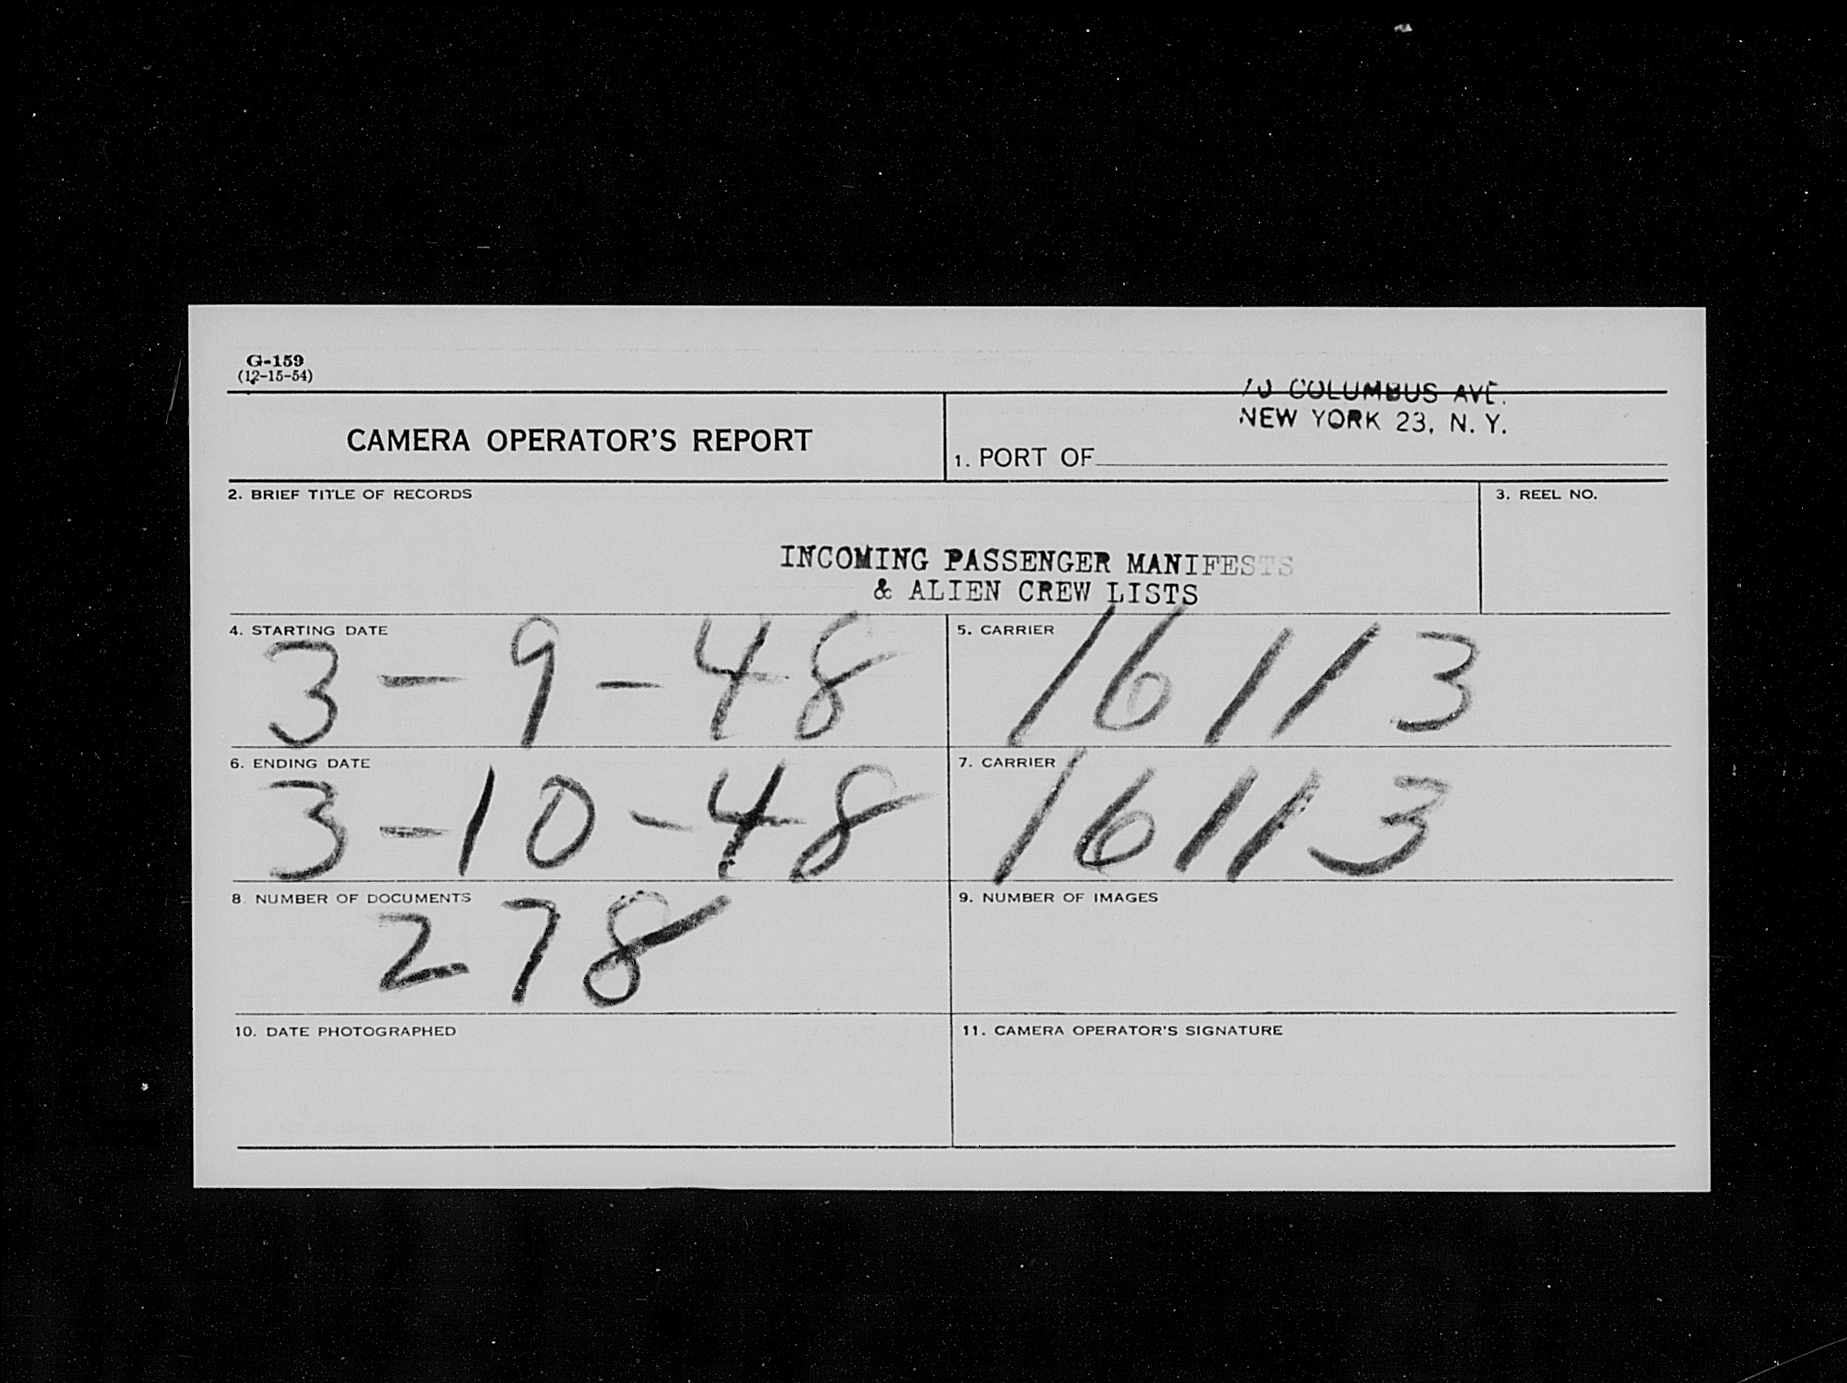 G-159
(12-15-54)
70 COLUMBUS AVE.
NEW YORK 23, N. Y.
CAMERA OPERATOR'S REPORT
1. PORT OF
2. BRIEF TITLE OF RECORDS
3. REEL NO.
INCOMING PASSENGER MANIFESTS
& ALIEN CREW LISTS
4. STARTING DATE
3-9-48
5. CARRIER
16113
6. ENDING DATE
3-10-48
7. CARRIER
16113
8. NUMBER OF DOCUMENTS
278
9. NUMBER OF IMAGES
10. DATE PHOTOGRAPHED
11. CAMERA OPERATOR'S SIGNATURE